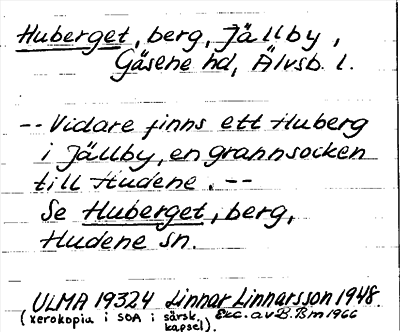 Huberget, berg, Jällby,
Gäsene hd, Älvsb. l.
-- Vidare finns ett Huberg
i Jällby, en grannsocken
till Hudene. --
Se Huberget, berg,
Hudene sn.
ULMA 19324 Linnar Linnarsson 1948.
(xerokopia i SOA i särsk. kapsel). Exc. av B. Bm 1966